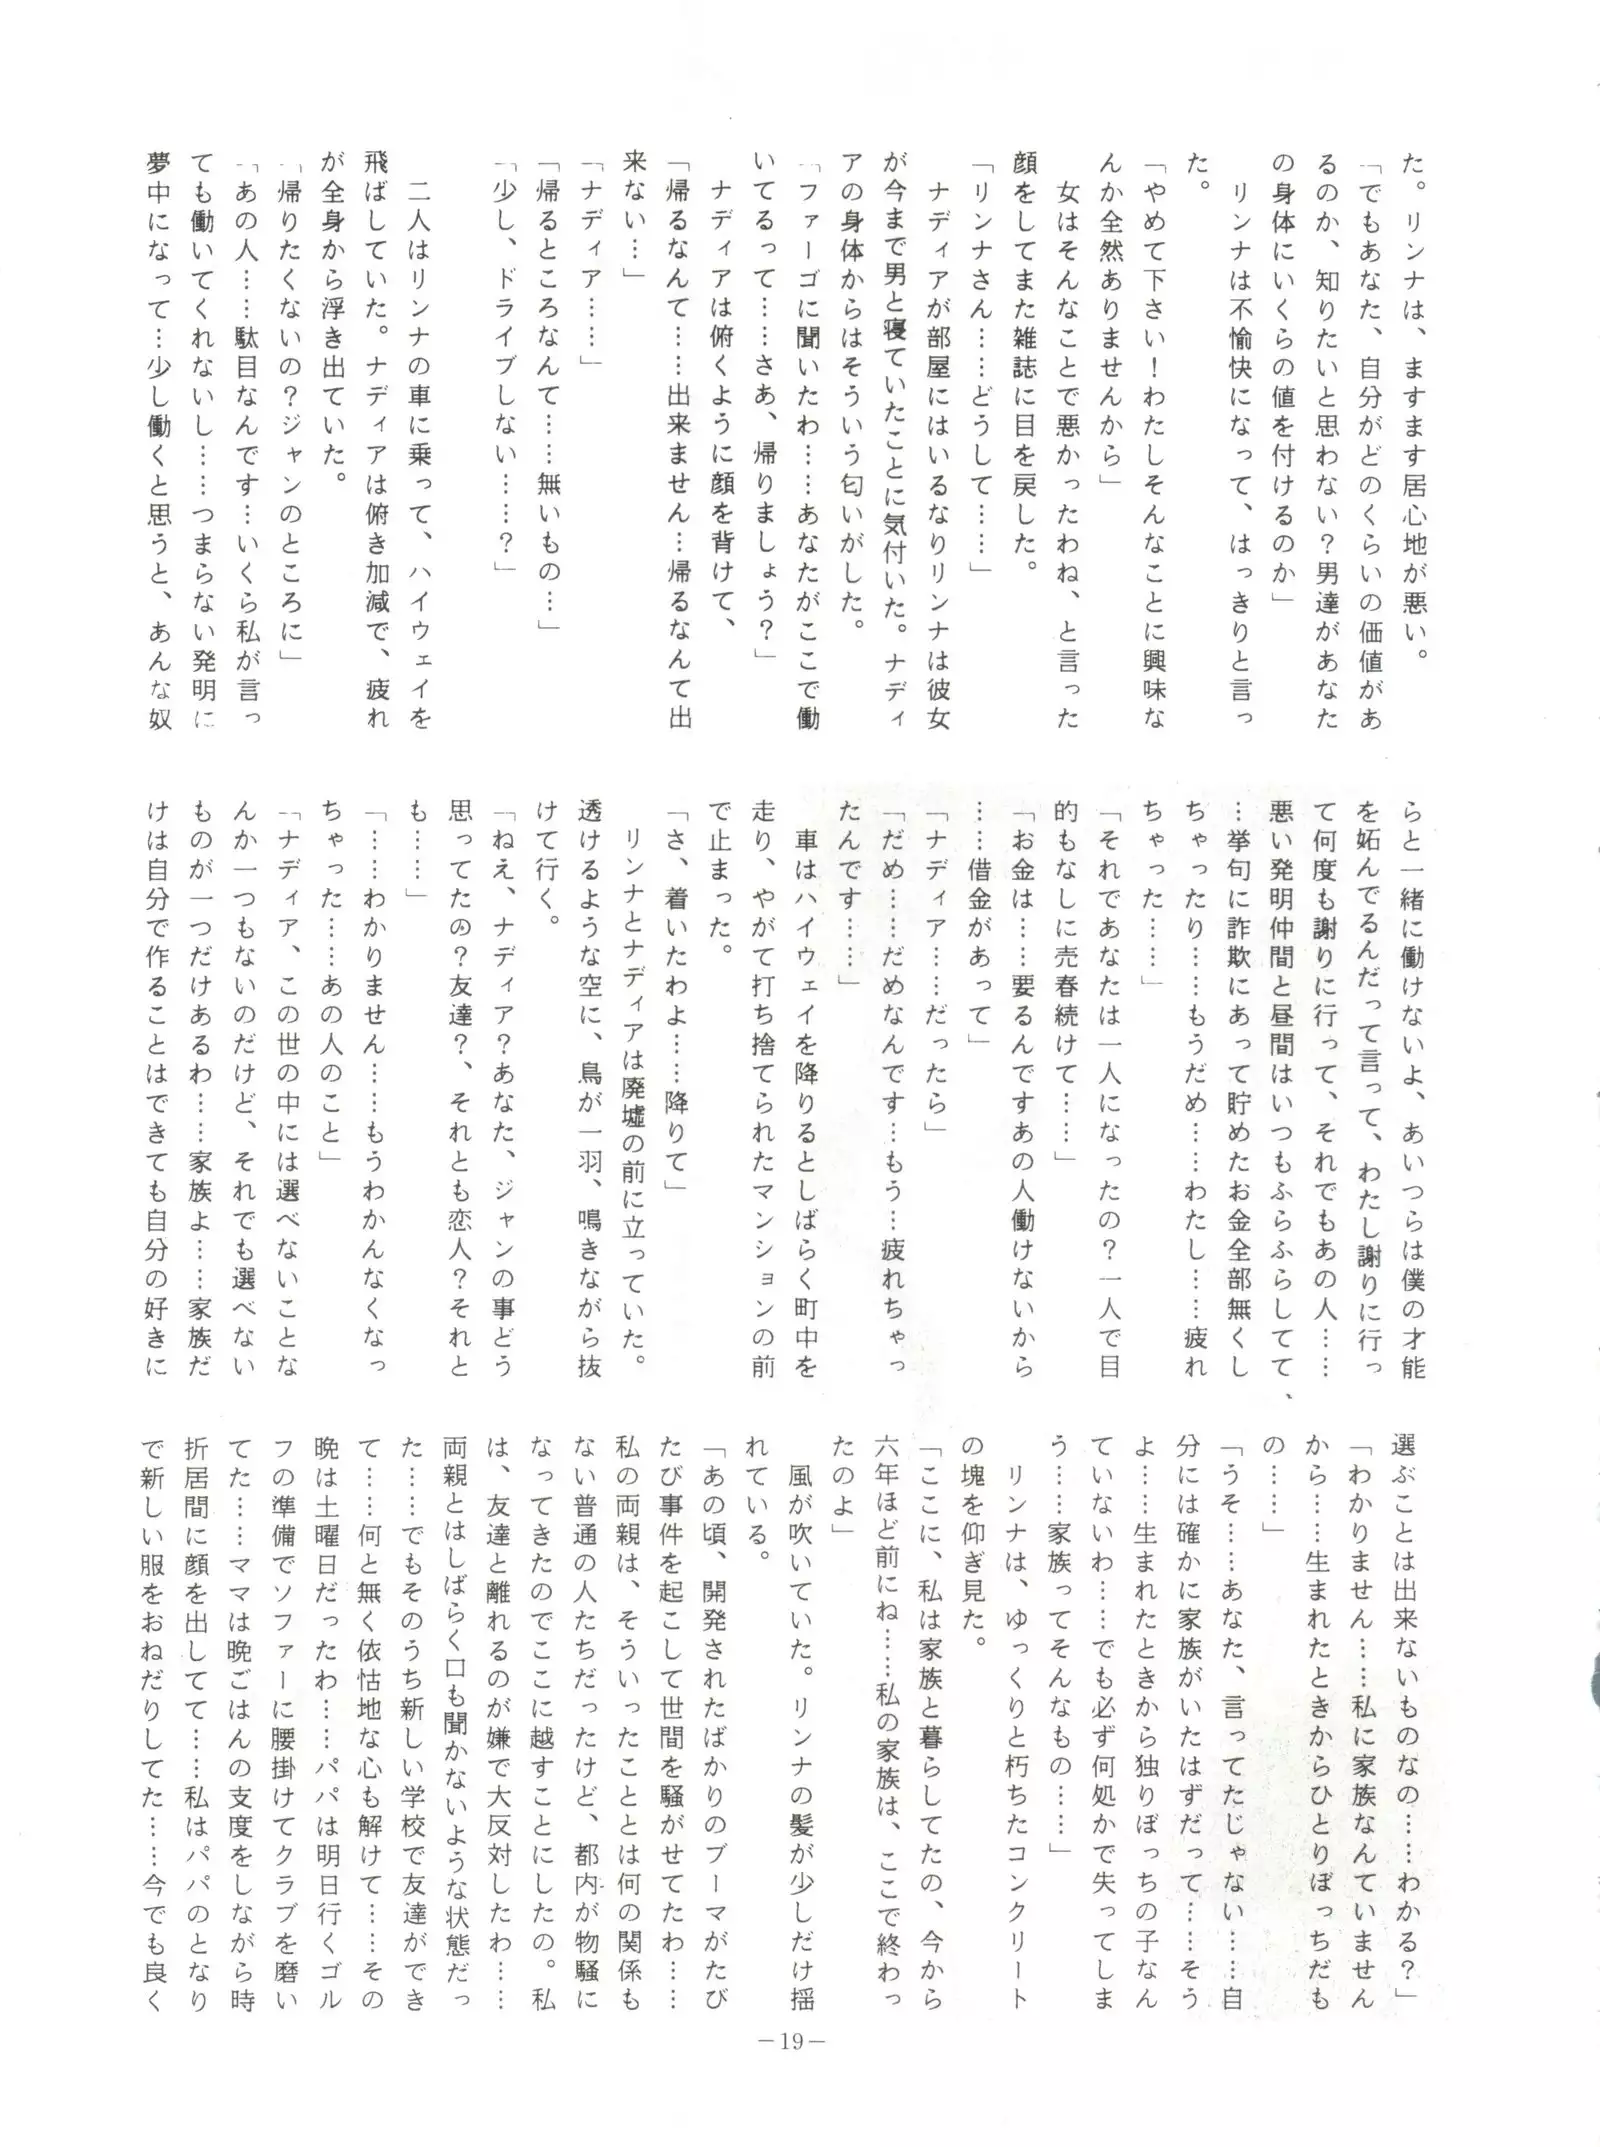 た。リンナは、ますます居心地が悪い。
「でもあなた、自分がどのくらいの価値があ
るのか、知りたいと思わない？男達があなた
の身体にいくらの値を付けるのか」
　リンナは不愉快になって、はっきりと言っ
た。
「やめて下さい！わたしそんなことに興味な
んか全然ありませんから」
　女はそんなことで悪かったわね、と言った
顔をしてまた雑誌に目を戻した。
「リンナさん……どうして……」
　ナディアが部屋にはいるなりリンナは彼女
が今まで男と寝ていたことに気付いた。ナディ
アの身体からはそういう匂いがした。
「ファーゴに聞いたわ……あなたがここで働
いてるって……さあ、帰りましょう？」
　ナディアは俯くように顔を背けて、
「帰るなんて……出来ません…帰るなんて出
来ない…」
「ナディア……」
「帰るところなんて……無いもの…」
「少し、ドライブしない……？」
　二人はリンナの車に乗って、ハイウェイを
飛ばしていた。ナディアは俯き加減で、疲れ
が全身から浮き出ていた。
「帰りたくないの？ジャンのところに」
「あの人……駄目なんです…いくら私が言っ
ても働いてくれないし……つまらない発明に
夢中になって…少し働くと思うと、あんな奴
らと一緒に働けないよ、あいつらは僕の才能
を妬んでるんだって言って、わたし謝りに行っ
て何度も謝りに行って、それでもあの人……
悪い発明仲間と昼間はいつもふらふらしてて、
…挙句に詐欺にあって貯めたお金全部無くし
ちゃったり……もうだめ……わたし……疲れ
ちゃった……」
「それであなたは一人になったの？一人で目
的もなしに売春続けて……」
「お金は……要るんですあの人働けないから
……借金があって」
「ナディア……だったら」
「だめ……だめなんです…もう…疲れちゃっ
たんです……」
　車はハイウェイを降りるとしばらく町中を
走り、やがて打ち捨てられたマンションの前
で止まった。
「さ、着いたわよ……降りて」
　リンナとナディアは廃墟の前に立っていた。
透けるような空に、鳥が一羽、鳴きながら抜
けて行く。
「ねえ、ナディア？あなた、ジャンの事どう
思ってたの？友達？、それとも恋人？それと
も……」
「……わかりません……もうわかんなくなっ
ちゃった……あの人のこと」
「ナディア、この世の中には選べないことな
んか一つもないのだけど、それでも選べない
ものが一つだけあるわ……家族よ……家族だ
けは自分で作ることはできても自分の好きに
選ぶことは出来ないものなの……わかる？」
「わかりません……私に家族なんていません
から……生まれたときからひとりぼっちだも
の……」
「うそ……あなた、言ってたじゃない……自
分には確かに家族がいたはずだって……そう
よ……生まれたときから独りぼっちの子なん
ていないわ……でも必ず何処かで失ってしま
う……家族ってそんなもの……」
　リンナは、ゆっくりと朽ちたコンクリート
の塊を仰ぎ見た。
「ここに、私は家族と暮らしてたの、今から
六年ほど前にね……私の家族は、ここで終わっ
たのよ」
　風が吹いていた。リンナの髪が少しだけ揺
れている。
「あの頃、開発されたばかりのブーマがたび
たび事件を起こして世間を騒がせてたわ……
私の両親は、そういったこととは何の関係も
ない普通の人たちだったけど、都内が物騒に
なってきたのでここに越すことにしたの。私
は、友達と離れるのが嫌で大反対したわ……
両親とはしばらく口も聞かないような状態だっ
た……でもそのうち新しい学校で友達ができ
て……何と無く依怙地な心も解けて……その
晩は土曜日だったわ……パパは明日行くゴル
フの準備でソファーに腰掛けてクラブを磨い
てた……ママは晩ごはんの支度をしながら時
折居間に顔を出してて……私はパパのとなり
で新しい服をおねだりしてた……今でも良く
－19－